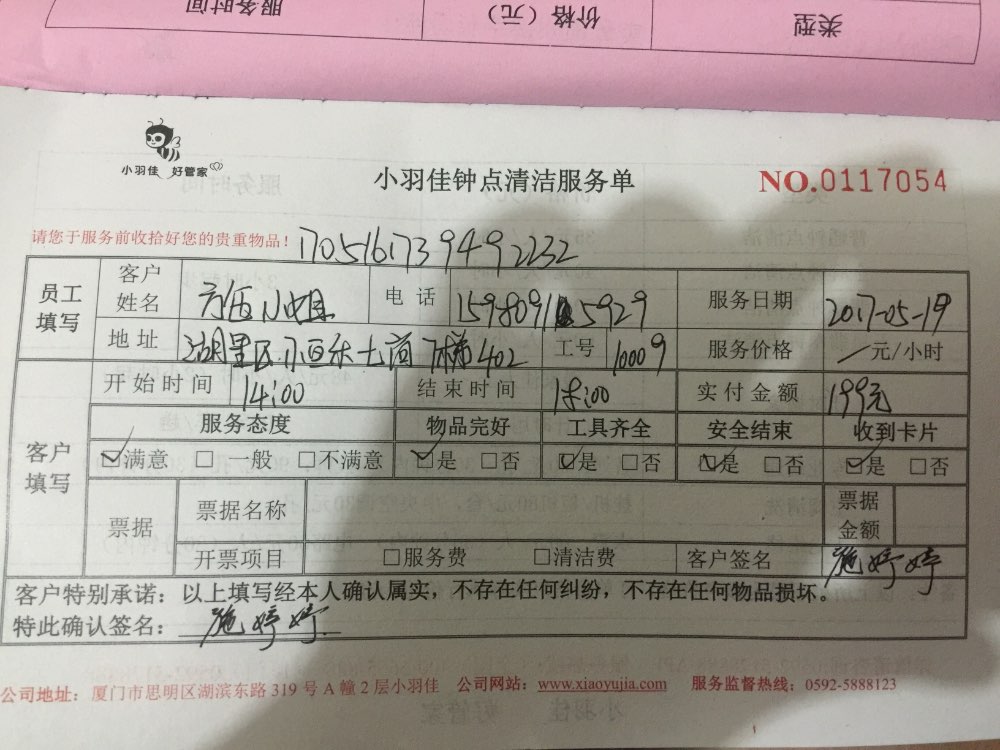 服务时间 价格（元） 类型
小羽佳 好管家
小羽佳钟点清洁服务单
NO.0117054
请您于服务前收拾好您的贵重物品！
1705161739492232
员工填写 客户姓名 小姐 电话 服务日期 2017-05-19
地址 湖里区 402 工号 10009 服务价格 元/小时
开始时间 14:00 结束时间 18:00 实付金额 199元
客户填写 服务态度 物品完好 工具齐全 安全结束 收到卡片
☑满意 □一般 □不满意 ☑是 □否 ☑是 □否 ☑是 □否 ☑是 □否
票据 票据名称 票据金额
开票项目 □服务费 □清洁费 客户签名 施婷婷
客户特别承诺：以上填写经本人确认属实，不存在任何纠纷，不存在任何物品损坏。
特此确认签名：施婷婷
公司地址：厦门市思明区湖滨东路 319 号 A 幢 2 层小羽佳 公司网站：www.xiaoyujia.com 服务监督热线：0592-5888123